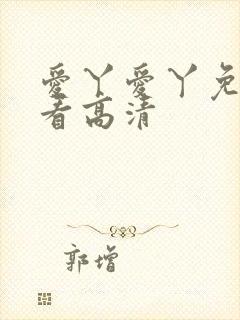 愛丫愛丫免
看高清
郭增